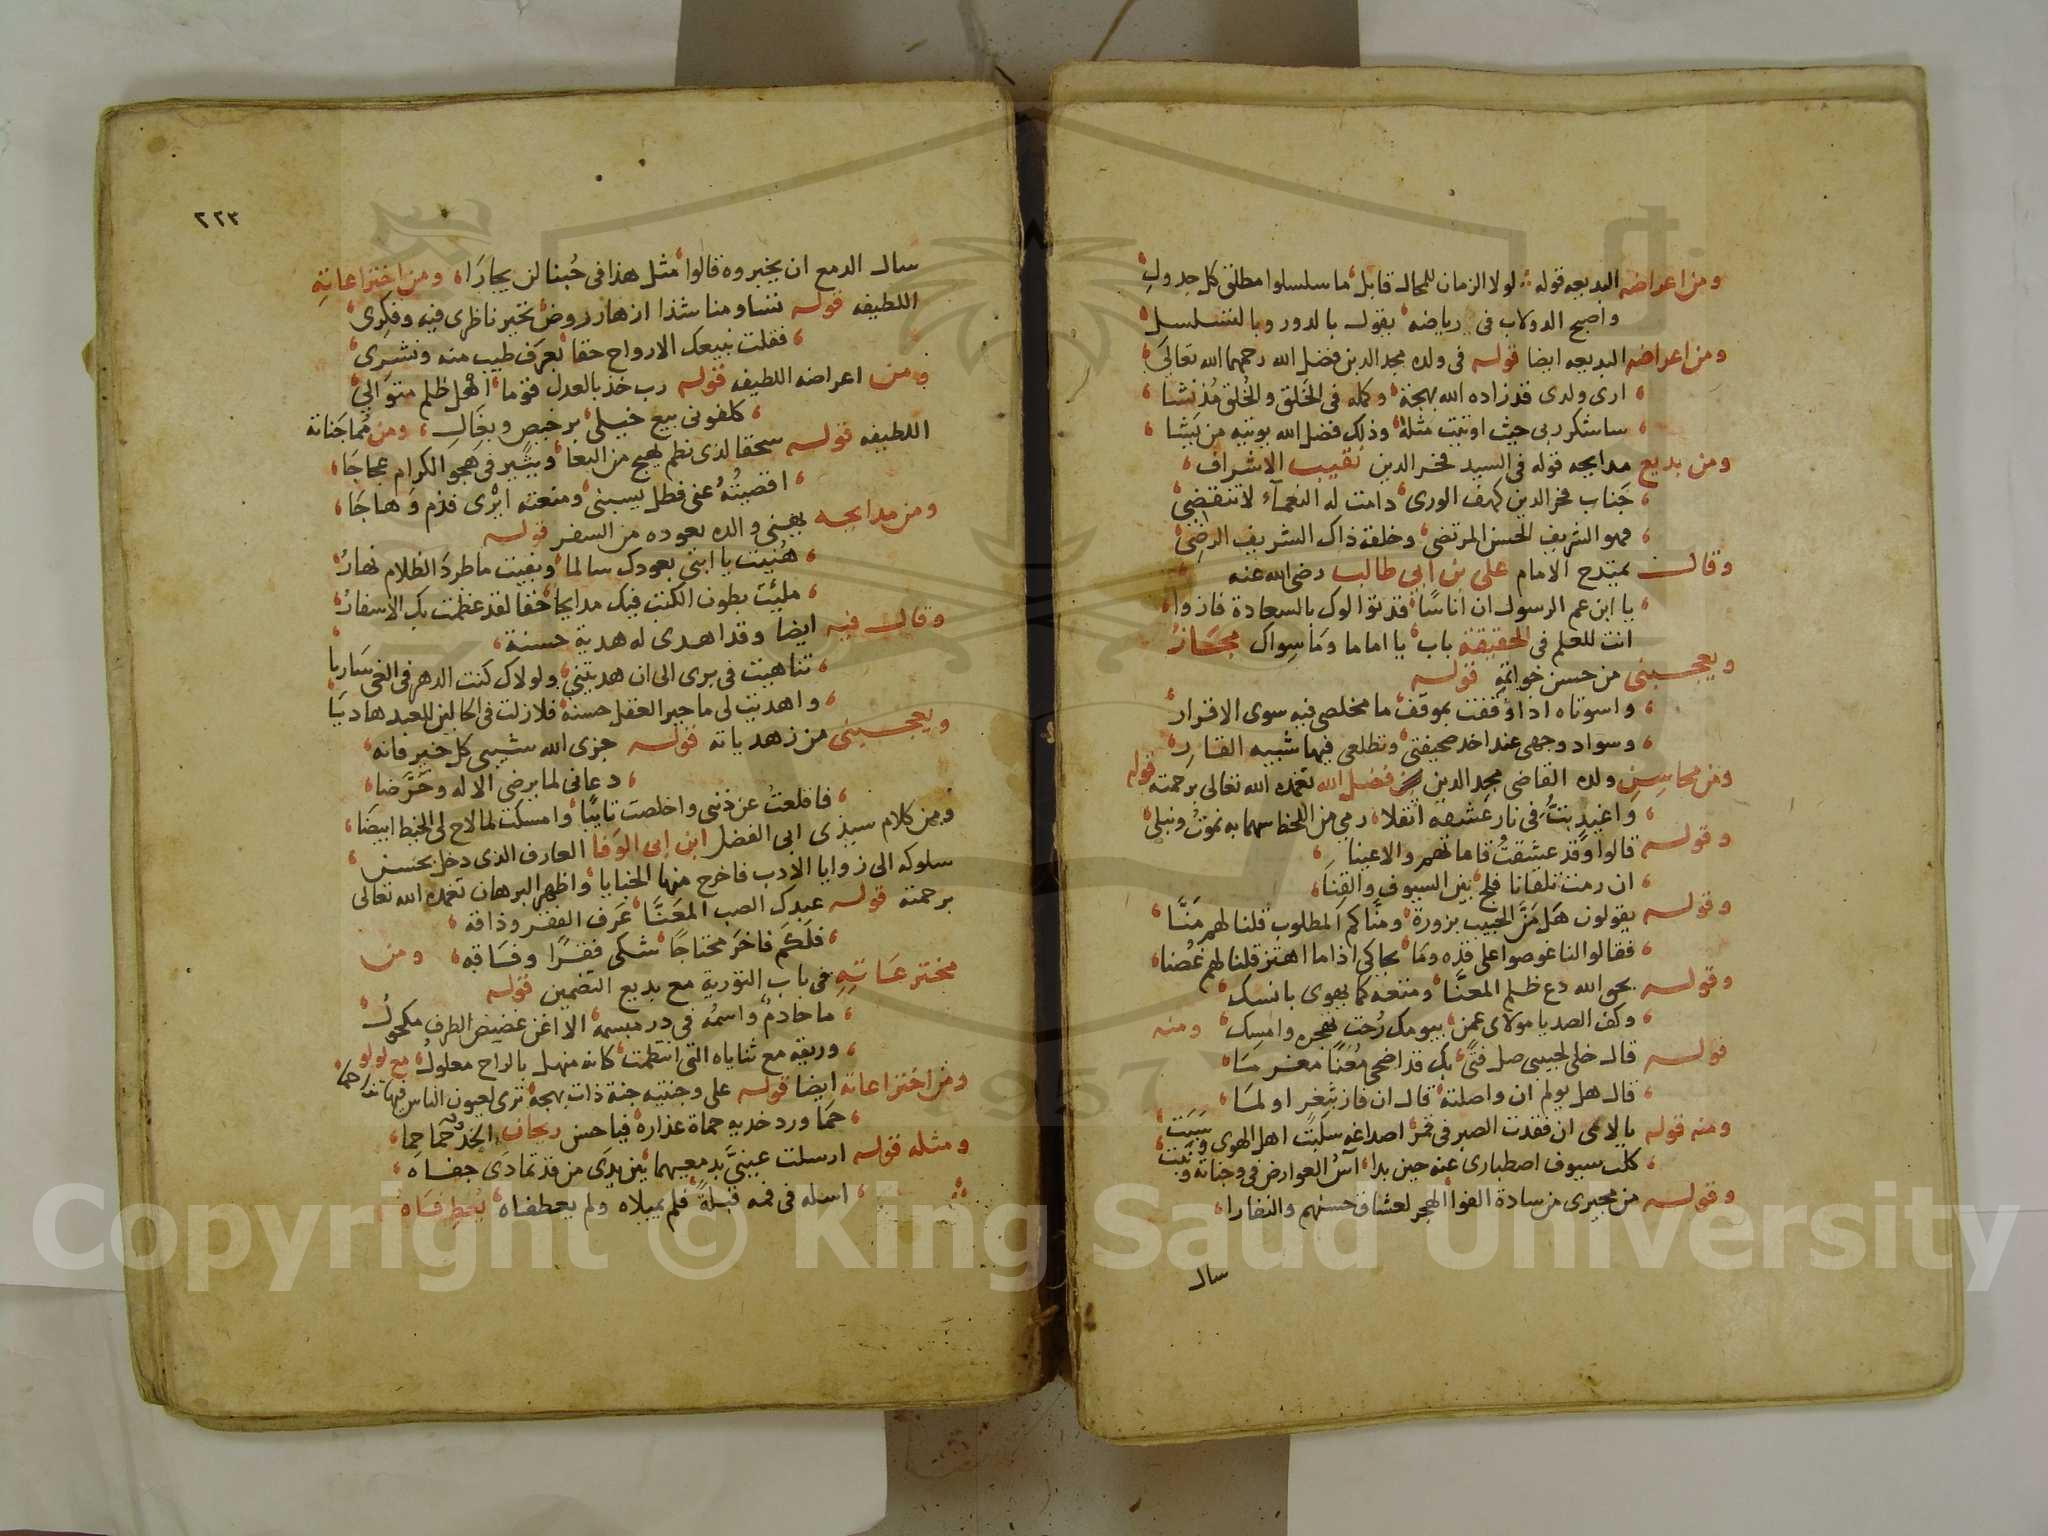 ومن اعراضه البديعه قوله لولا الزمان للمحال قابل ما سلسلوا مطلق كل جدول
واصبح الدولاب في رياضه يقول بالدور وبالتسلسل
ومن اعراضه البديعه ايضا قوله في ولده مجد الدين فضل الله رحمهما الله تعالى
ارى ولدى قد زاده الله بهجة وكمله في الخَلق والخُلق مُذ نشا
ساشكر ربى حيث اوتيت مثله وذلك فضل الله يوتيه من يَشا
ومن بديع مدايحه قوله في السيد فخر الدين نقيب الاشراف
جَناب فخر الدين كهف الورى دامت له النعمآء لا تنقضي
فهو الشريف الحسن المرتضى وخلقه ذاك الشريف الرضِى
وقال يمتدح الامام على بن ابى طالب رضى الله عنه
يا ابن عم الرسول ان اناسًا قد توالوك بالسعادة فازوا
انت للعلم في الحقيقة باب يا اماما وَما سِواك مجَازُ
ويعجبنى من حسن خواتمِه قوله
واسوتاه اذا وقفت بموقف ما مخلصى فيه سوى الاقرار
وسواد وجهى عند اخذ صحيفتى وتطلعى فيها شبيه القار
ومن محاسِن ولده القاضى مجد الدين بن فضل الله تغمده الله تعالى برحمته قوله
واغيدٍ بتُّ في نار عشقه اتقلا رمي من اللحظ سهما به نموتُ ونبلى
وقوله قالوا وقد عشقتُ قاماتهم والاعينا
ان رمت تلقانا فلج بين السيوف والقنَا
وقوله يقولون هَل مَنَّ الحبيب بزورة ومنّاكم المطلوب قلنا لهم مَنَّا
فقالوا لنا غوصوا على قدِّه ومَا يحاكى اذا ما اهتز قلنا لهم غُصنا
وقوله بحق الله دع ظلم المعنَّا ومتعه كما يهوى بانسك
وكف الصد يا مولاى عمن بيومك رُحت تهجره وامسِك ومنه
قوله قال خلى لحبيبى صل فتىً بك قد اضحى مُعَنًّا مغرمَا
قال هل يولم ان واصلته قال ان فاز بثغر اولمَا
ومنه قوله يا لائمى ان فقدت الصبر في قمر اصداغه سلبَت اهل الهوى وسبَت
كلت سيوف اصطبارى عنه حين بدا آسُ العوارض في وجناته ونبت
وقوله من مجيرى من سادة الفوا الهجر لعشاق حسنهم والنفارا
سال
٢٢٣
سال الدمع ان يخبروه قالوا مثل هذا في حُبنا لن يجارَا ومن اختراعاتِه
اللطيفه قوله نشاومنا شذا ازهار روض تحير ناظرى فيه وفكِرى
فقلت نبيعك الارواح حقا بعرف طيب منه ونشرى
ومن اعراضه اللطيفه قوله رب خذ بالعدل قوما اهل ظلم متوالي
كلفونى بيع خيلى برخيص وبغَال ومن مُماجَناته
اللطيفه قوله سحقا لذى نظم لهج من البغا ويثير في هجو الكرام عجاجَا
اقصيتُهُ عنى فظل يسبنى ومنعته ايْرى فذم وَهاجَا
ومن مدايحه يهنى والده بعوده من السفر قوله
هُنيت يا ابنى بعودك سالما وبقيت ما طردَ الظلام نهارُ
مليئت بطون الكتب فيك مدايحا حقا لقد عظمت بك الاسفارُ
وقال فيه ايضا وقد اهدى له هدية حسنة
تناهيت في برى الى ان هديتني ولولاك كنت الدهر في الغى سَاريا
واهديت لى ما حير العقل حسنه فلا زلت في الحالين للعبد هاديَا
ويعجبنى من زهدياته قوله جزى الله شيبى كل خير فانه
دعانى لما يرضى الاله وحَرَّضا
فاقلعتُ عن ذنبى واخلصت تايبًا وامسكت لما لاح لى الخيط ابيضَا
ومن كلام سيدى ابى الفضل ابن ابى الوَفا العارف الذى دخل بحسن
سلوكه الى زوايا الادب فاخرج منها الخبايا واظهر البرهان تغمده الله تعالى
برحمته قوله عبدك الصب المعَنَّا عَرف الفقر وذاقه
فلَكَم فاخَر محتاجًا شكى فقرًا وفَاقه ومن
مخترعَاتِه في باب التورية مع بديع التضمين قوله
ما خادمٌ واسمُه في در مبسمه الا اغن غضيض الطرف مكحولُ
وريقه مع ثناياه التى انتظمت كانه منهل بالراح معلولُ مع لولو
ومن اختراعاته ايضا قوله على وجنتيه جنة ذات بهجة ترى لعيون الناس فيها تزاحما
حمَا ورد خديه حماة عذاره فيا حسن ريحان الخدود حمَا حِما
ومثله قوله ارسلت عينيَّ بدمعيهما بين يدَى من قد تمادَى جفاه
اسله في فمه قبلةً فلم يميلاه ولم يعطفاه يُعطِ فَاهُ